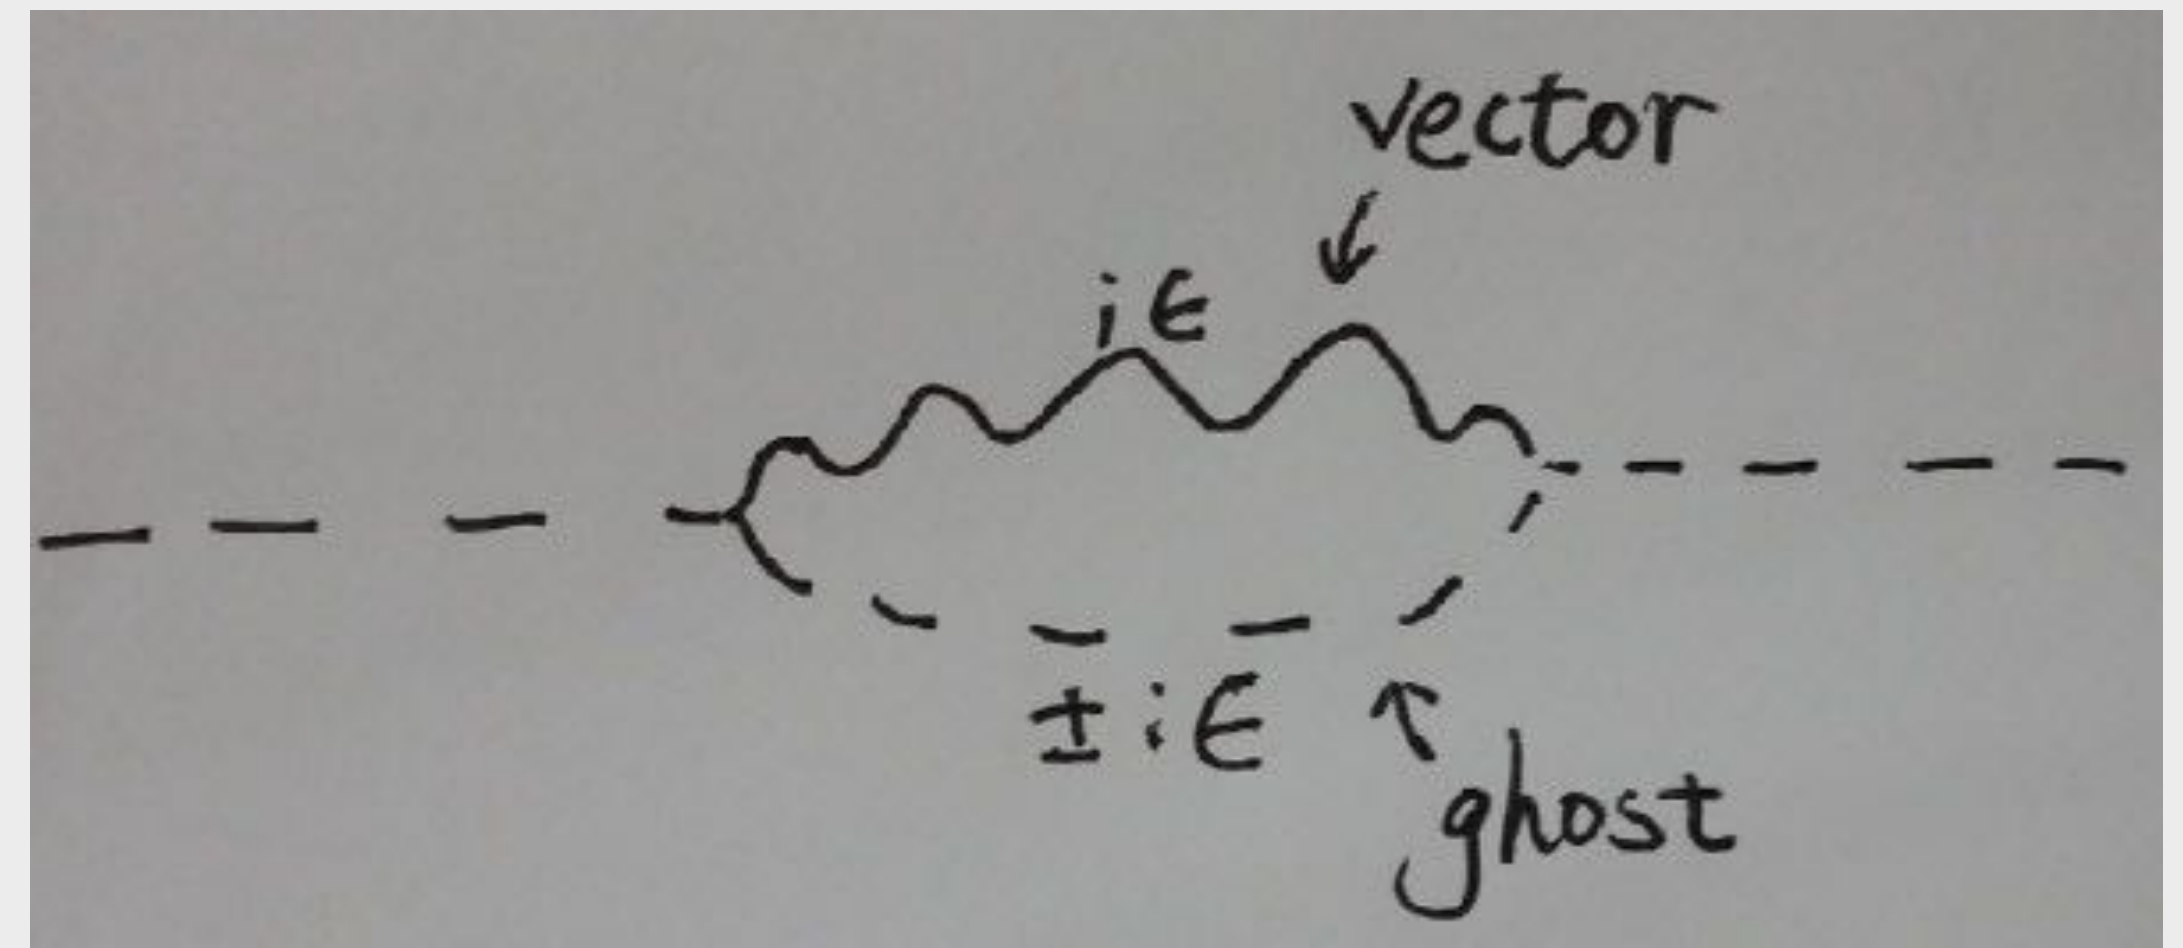 vector
iϵ
±iϵ
ghost